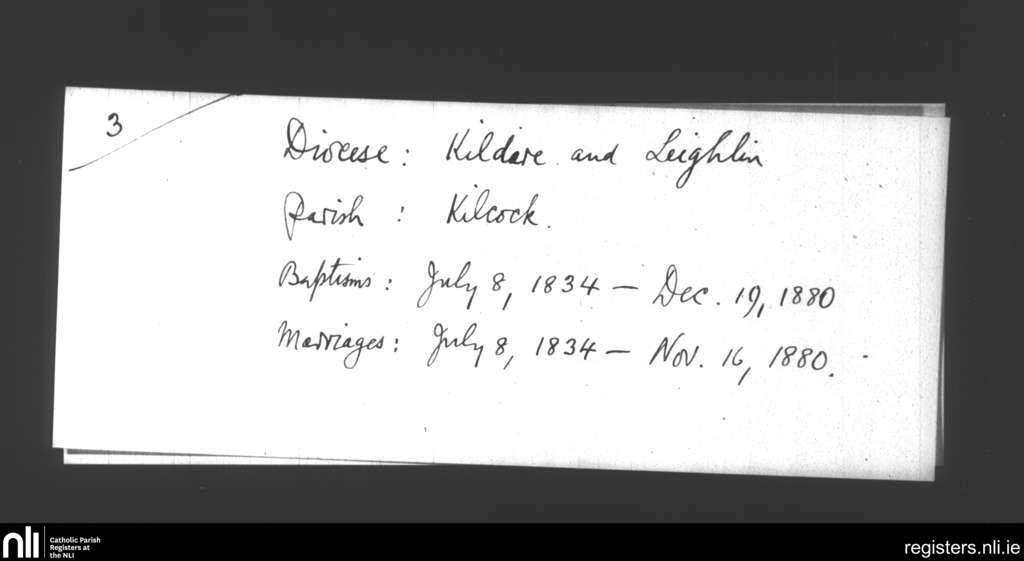 3
Diocese: Kildare and Leighlin
Parish : Kilcock.
Baptisms: July 8, 1834 – Dec. 19, 1880
Marriages: July 8, 1834 – Nov. 16, 1880.
nli
Catholic Parish
Registers at
the NLI
registers.nli.ie